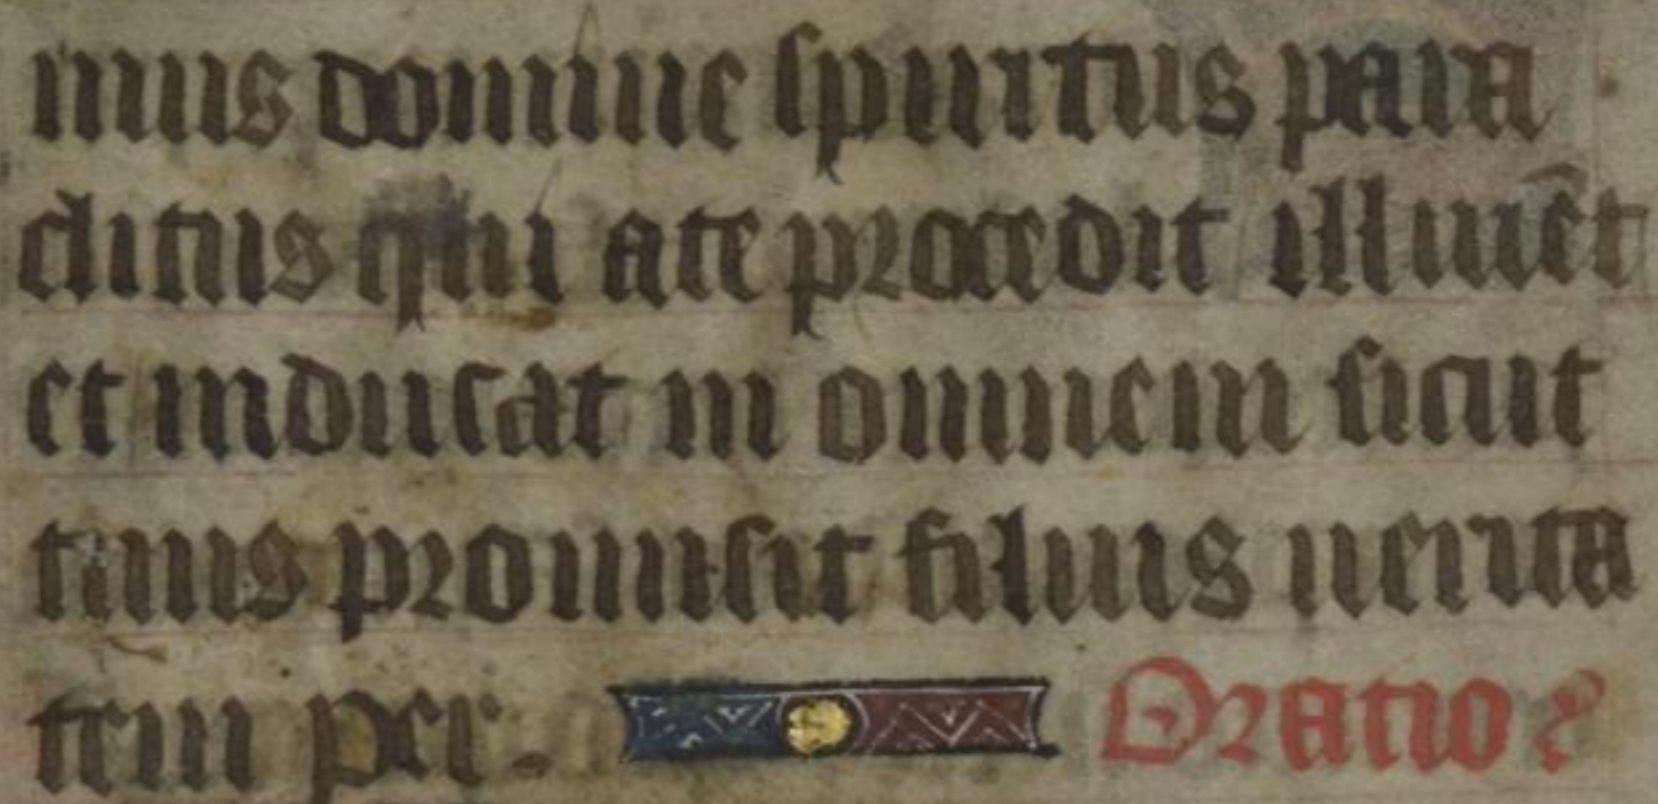 nius domine spiritus para
clitus qui a te procedit illumēt
et inducat in omnem sicut
tuus promisit filius uerita
tem per. Oratio